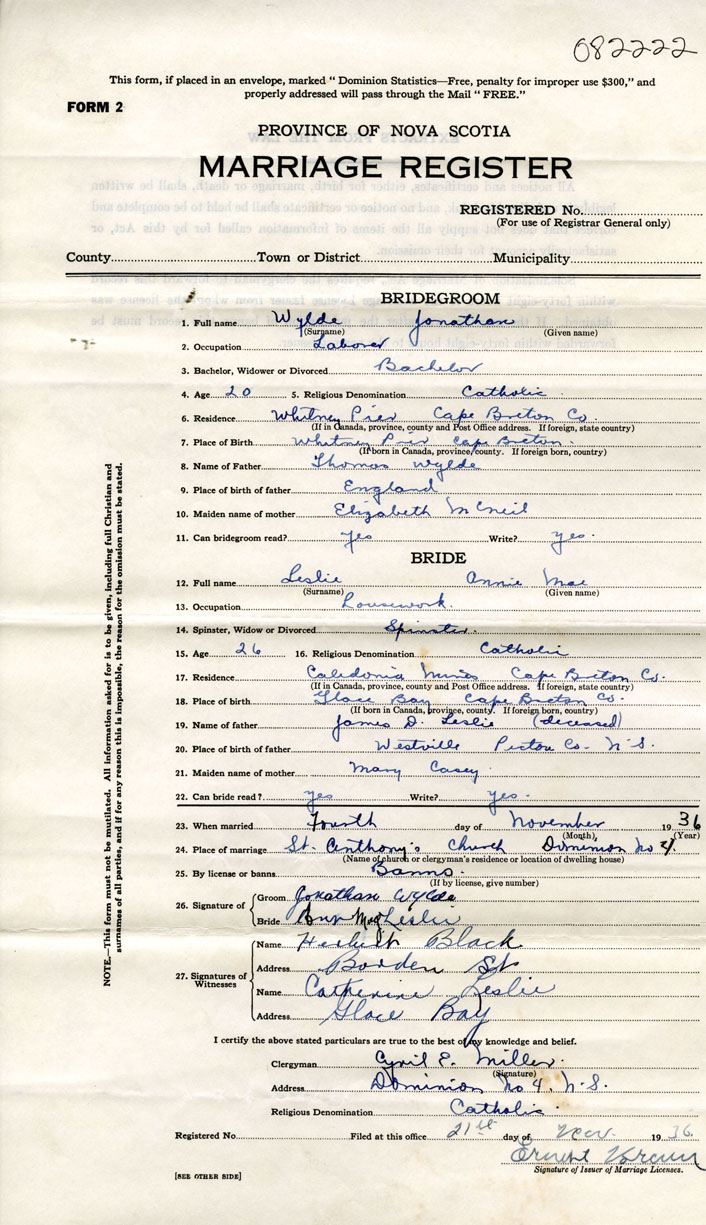 082222
This form, if placed in an envelope, marked " Dominion Statistics—Free, penalty for improper use $300," and
properly addressed will pass through the Mail " FREE."
FORM 2
PROVINCE OF NOVA SCOTIA
MARRIAGE REGISTER
REGISTERED No.
(For use of Registrar General only)
County Town or District Municipality
BRIDEGROOM
1. Full name Wylde Jonathan
(Surname) (Given name)
2. Occupation Laborer
3. Bachelor, Widower or Divorced Bachelor
4. Age 20 5. Religious Denomination Catholic
6. Residence Whitney Pier Cape Breton Co.
(If in Canada, province, county and Post Office address. If foreign, state country)
7. Place of Birth Whitney Pier Cape Breton.
(If born in Canada, province/county. If foreign born, country)
8. Name of Father Thomas Wylde
9. Place of birth of father England
10. Maiden name of mother Elizabeth McNeil
11. Can bridegroom read? yes Write? yes.
BRIDE
12. Full name Leslie Annie Mae
(Surname) (Given name)
13. Occupation Housework.
14. Spinster, Widow or Divorced Spinster.
15. Age 26 16. Religious Denomination Catholic
17. Residence Caledonia Mines Cape Breton Co.
(If in Canada, province, county and Post Office address. If foreign, state country)
18. Place of birth Glace Bay Cape Breton Co.
(If born in Canada, province, county. If foreign born, country)
19. Name of father James D. Leslie (deceased)
20. Place of birth of father Westville Pictou Co. N.S.
21. Maiden name of mother Mary Casey
22. Can bride read? yes Write? yes.
23. When married Fourth day of November 1936
(Month) (Year)
24. Place of marriage St. Anthony's Church Dominion No 4.
(Name of church or clergyman's residence or location of dwelling house)
25. By license or banns Banns.
(If by license, give number)
26. Signature of Groom Jonathan Wylde
Bride Mae Leslie
27. Signatures of Witnesses
Name Black
Address Borden St
Name Catherine Leslie
Address Glace Bay
I certify the above stated particulars are true to the best of my knowledge and belief.
Clergyman Cyril E. Miller.
(Signature)
Address Dominion No 4. N.S.
Religious Denomination Catholic.
Registered No. Filed at this office 21st day of Nov. 1936.
Ernest
Signature of Issuer of Marriage Licenses.
[SEE OTHER SIDE]
NOTE.—This form must not be mutilated. All information asked for is to be given, including full Christian and
surnames of all parties, and if for any reason this is impossible, the reason for the omission must be stated.